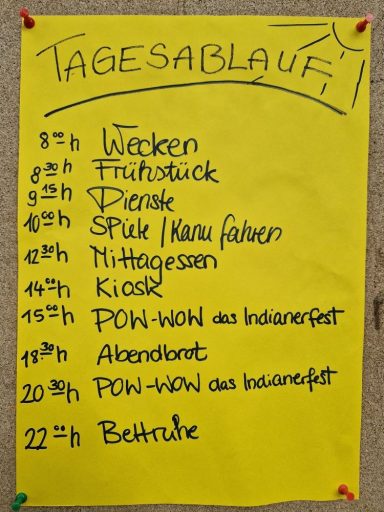 TAGESABLAUF
8⁰⁰ h Wecken
8³⁰ h Frühstück
9¹⁵ h Dienste
10⁰⁰ h Spiele / Kanu fahren
12³⁰ h Mittagessen
14⁰⁰ h Kiosk
15⁰⁰ h POW-WOW das Indianerfest
18³⁰ h Abendbrot
20³⁰ h POW-WOW das Indianerfest
22⁰⁰ h Bettruhe